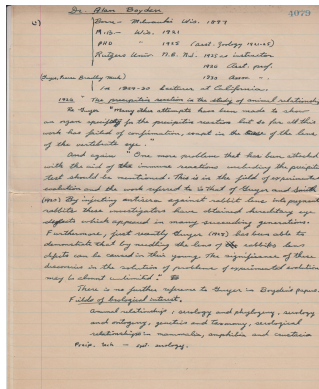 Dr. Alan Boyden
4079
c)
Born - Milwaukee Wis. 1897
M.S. - Wis. 1921
PhD - " 1925 (Asst. Zoology 1921-25)
Rutgers Univ N.B. N.J. 1925 as instructor
1926 Asst. prof.
1930 Asso. - .
In 1929-30 Lecturer at California.
1926 "The precipitin reaction in the study of animal relationships
to Guyer "Many attempts have been made to show
an organ specificity for the precipitin reaction but so far all this
work has failed of confirmation, except in the case of the lens
of the vertebrate eye."
And again "One more problem that has been attacked
with the aid of the immune reactions including the precipitin
test should be mentioned. This is in the field of experimental
evolution and the work referred to is that of Guyer and Smith
By injecting antisera against rabbit lens into pregnant
rabbits these investigators have obtained hereditary eye
defects which appeared in many succeeding generations.
Furthermore, just recently Guyer has been able to
demonstrate that by needling the lens of the rabbits lens
defects can be caused in their young. The significance of these
discoveries in the solution of problems of experimental evolution
may be almost unlimited."
There is no further reference to Guyer in Boyden's papers.
Fields of biological interest.
Animal relationships, serology and phylogeny, serology
and ontogeny, genetics and taxonomy, serological
relationships in mammalia, amphibia and crustacea
serology.